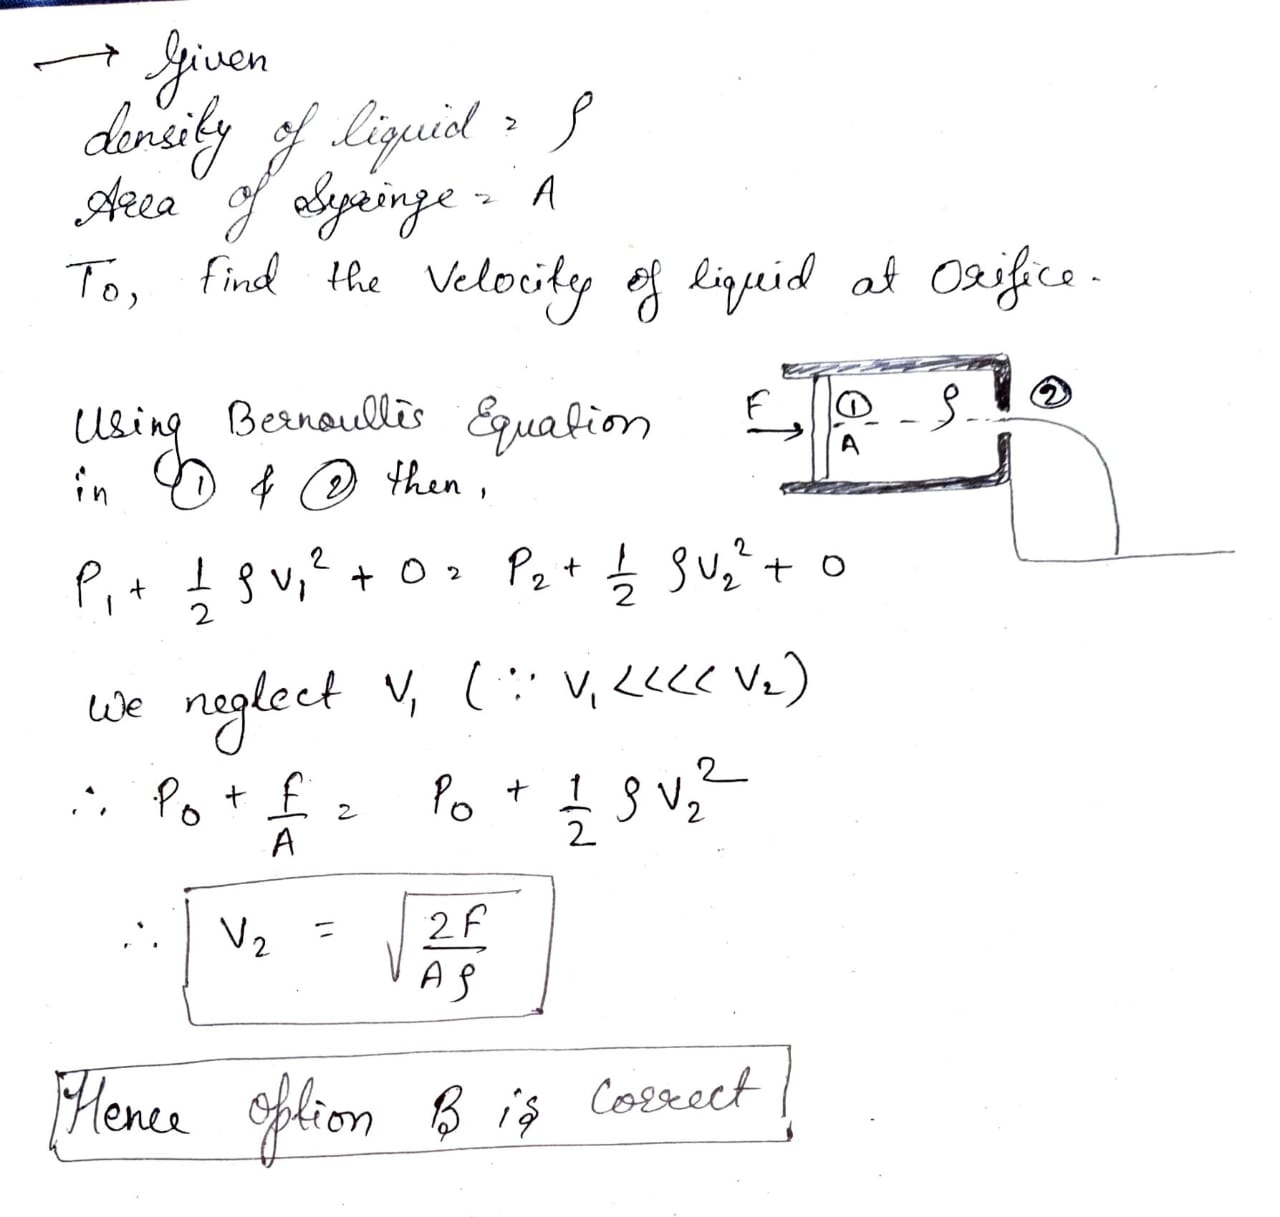 → Given
density of liquid = ρ
Area of Syringe = A
To, find the Velocity of liquid at Orifice.
Using Bernoullis Equation
in ① & ② then,
F → ① A ρ ②
P₁ + 1/2 ρV₁² + 0 = P₂ + 1/2 ρV₂² + 0
We neglect V₁ (∵ V₁ <<<< V₂)
∴ P₀ + F/A = P₀ + 1/2 ρV₂²
∴ V₂ = √(2F/Aρ)
Hence option B is Correct